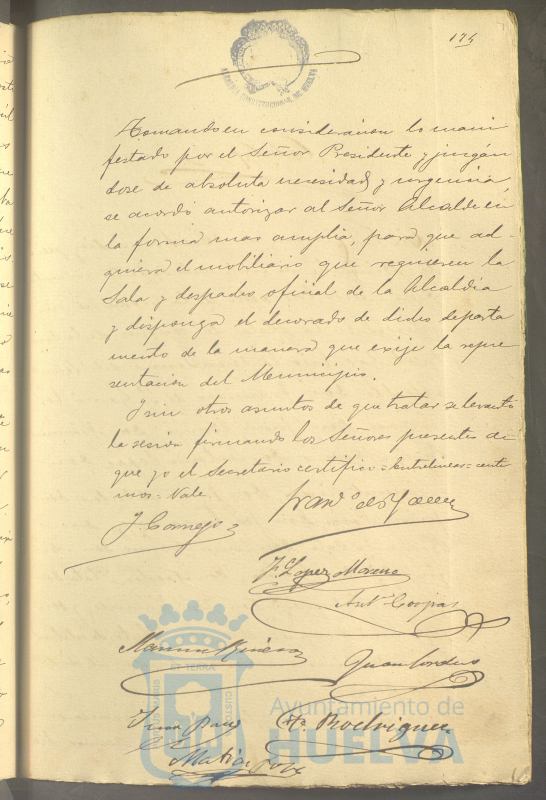 174
ALCALDIA CONSTITUCIONAL DE HUELVA
Tomando en consideracion lo mani
festado por el Señor Presidente y juzgan
dose de absoluta necesidad y urgencia,
se acordó autorizar al Señor Alcalde en
la forma mas amplia, para que ad-
quiera el mobiliario que requieren la
Sala y despacho oficial de la Alcaldia
y disponga el decorado de dicho departa
mento de la manera que exije la repre
sentacion del Municipio.
Y sin otros asuntos de que tratar se levantó
la sesion firmando los Señores presentes de
que yo el Secretario certifico = Entrelineas = 
mos = Vale
J. Cornejo
F. Lopez Moreno
Antº
Juan
Rodriguez
Matias
Ayuntamiento de
HUELVA